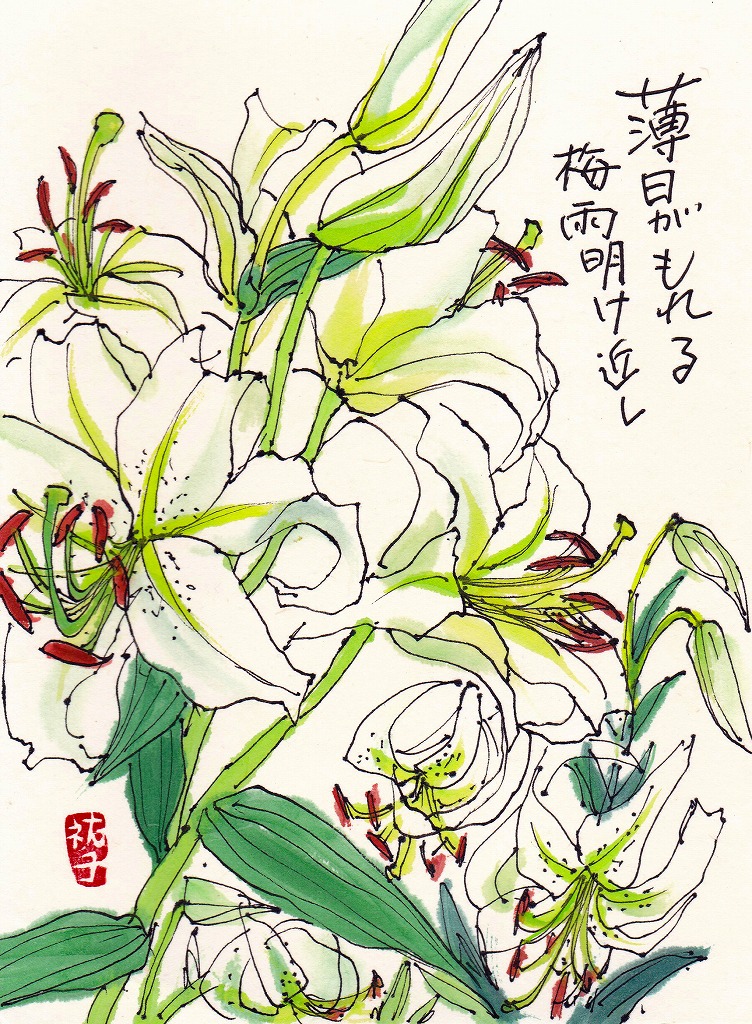 薄日がもれる
梅雨明け近し
祐子